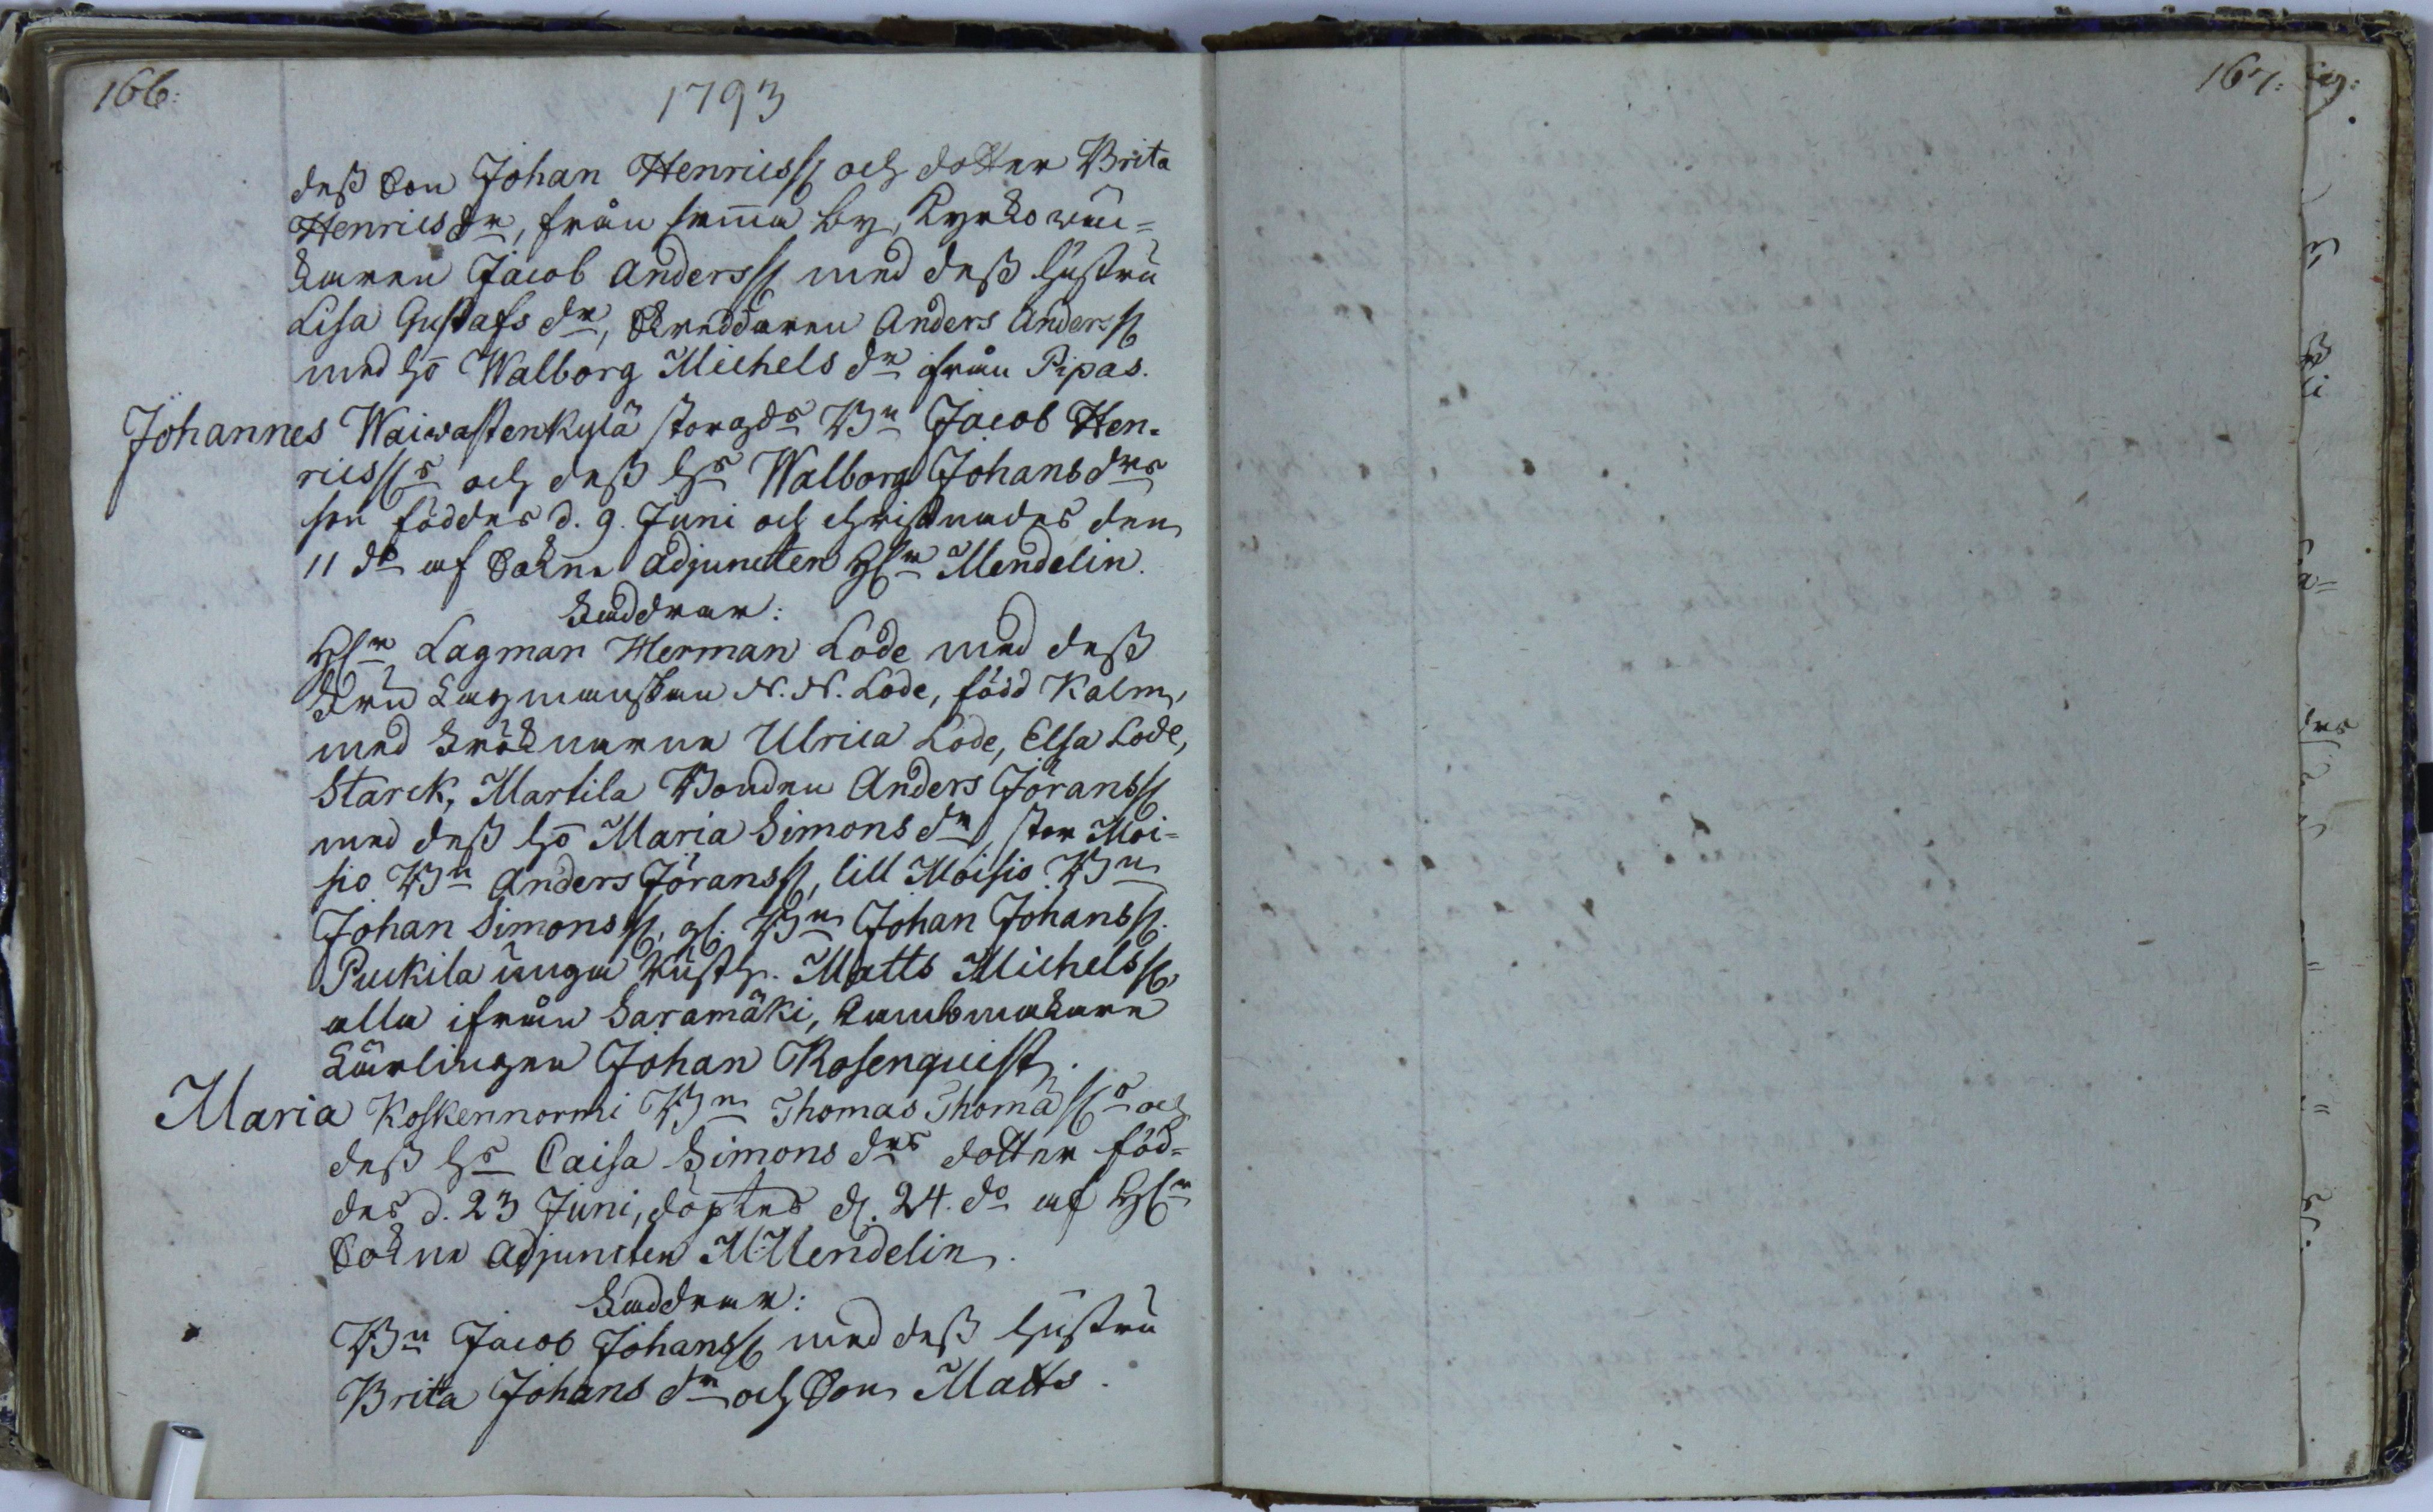 166:
1793
dess Son Johan Henricss: och dotter Brita
Henrics dr, från samma by, Kyrkowäc-
karen Jacob Anderss: med dess hustru
Lisa Gustafs dr, Skreddaren Anders Anderss:
med ho Walborg Michels dr ifrån Pipas.
Johannes Waiwastenkylä storgds Bn Jacob Hen-
ricss:s och dess hs Walborg Johans drs
son föddes d. 9. Juni och christnades den
11 do af Sokne Adjuncten Hr Mendelin.
Faddrar:
Hr Lagman Herman Lode med dess
Fru Lagmanskan N. N. Lode, född Kalm,
med Fröknarne Ulrica Lode, Elsa Lode,
Starck, Martila Bonden Anders Jöranss:
med dess ho Maria Simons dr, stor Moi-
sio Bn Anders Jöranss:, lill Moisio Bn
Johan Simonss:, gl. Bn Johan Johanss:
Puckila unga Rusth. Matts Michelss:,
alla ifrån Saramäki, Kambmakare
Lärlingen Johan Rosenquist.
Maria Koskennormi Bn Thomas Thomæss:s och
dess hs Caisa Simons drs dotter föd-
des d. 23 Juni, döptes d. 24. do af Hr
Sokne Adjuncten M: Mendelin.
Faddrar:
Bn Jacob Johanss: med dess hustru
Brita Johans dr och Son Matts.
167: